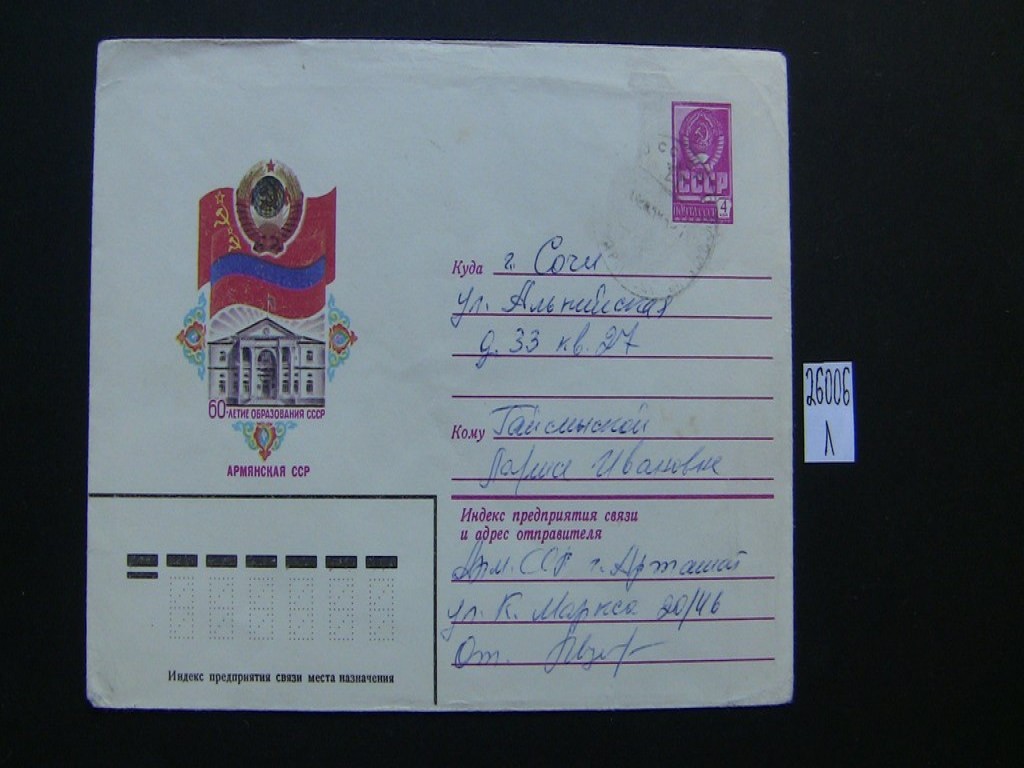 СССР
4
Куда г. Сочи
ул. Альпийская
д. 33 кв. 27
60-ЛЕТИЕ ОБРАЗОВАНИЯ СССР
АРМЯНСКАЯ ССР
Кому
Ларисе Ивановне
Индекс предприятия связи
и адрес отправителя
Арм. ССР г. Арташат
ул. К. Маркса 20/46
От.
Индекс предприятия связи места назначения
26006
Л